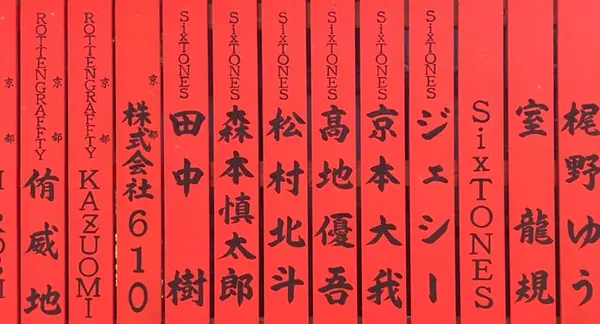 梶野ゆう
室龍規
SixTONES
SixTONES ジェシー
SixTONES 京本大我
SixTONES 高地優吾
SixTONES 松村北斗
SixTONES 森本慎太郎
SixTONES 田中樹
京都 株式会社610
京都 ROTTENGRAFFTY KAZUOMI
京都 ROTTENGRAFFTY 侑威地
京都